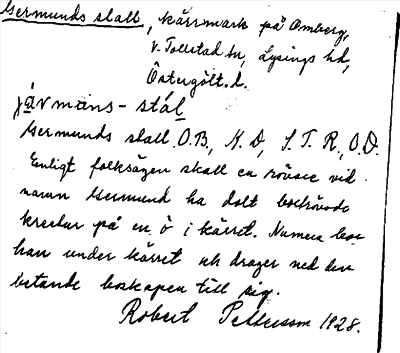 Germunds stall, kärrmark på Omberg,
V. Tollstad sn, Lysings hd,
Östergötl. l.
järmäns-stál
Germunds stall O.B., G.D., J.T.R., O.D.
Enligt folksägen skall en rövare vid
namn Germund ha dolt bortrövade
kreatur på en ö i kärret. Numera bor
han under kärret och drager ned den
betande boskapen till sig.
Robert Pettersson 1928.